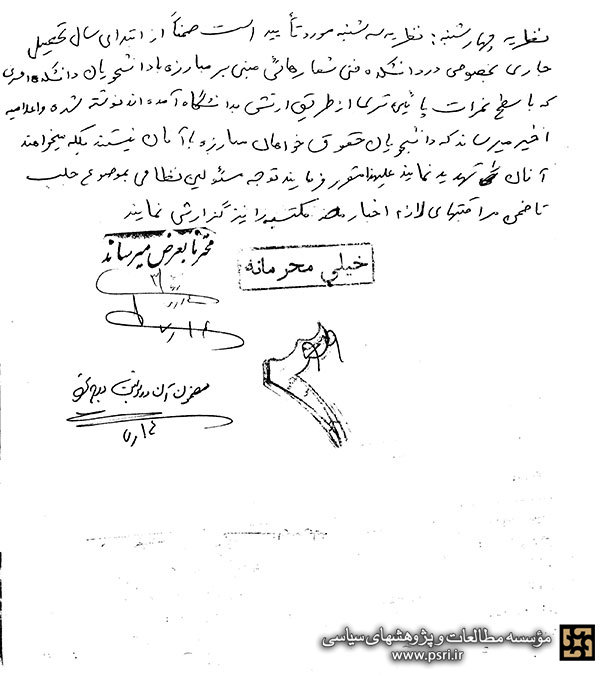 نظریه چهارشنبه: نظریه سه شنبه مورد تأیید است ضمناً از ابتدای سال تحصیلی
جاری بخصوص در دانشکده فنی شعارهائی مبنی بر مبارزه با دانشجویان دانشکده افسری
که با سطح نمرات پائین تری از طریق ارتش به دانشگاه آمده اند نوشته شده و اعلامیه
اخیر میرساند که دانشجویان حقوق خواهان مبارزه با آنان نیستند بلکه میخواهند
آنان را تهدید نمایند علیهذا مقرر فرمایند توجه مسئولین نظامی بموضوع جلب
تا ضمن مراقبتهای لازم اخبار مکتسبه را نیز گزارش نمایند
محترماً بعرض میرساند
خیلی محرمانه
۱۴ر۷
مضمون آن در بولتن درج شود
۱۴ر۷
مؤسسه مطالعات و پژوهشهای سیاسی
www.psri.ir